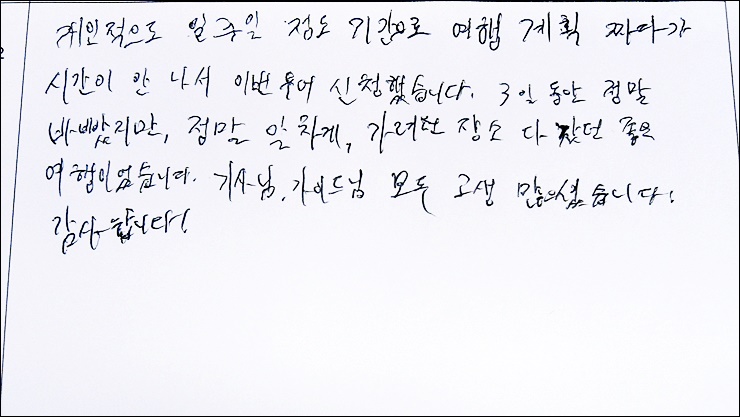 개인적으로 일주일 정도 기간으로 여행 계획 짜다가
시간이 안 나서 이번 투어 신청했습니다. 3일 동안 정말
바빴지만, 정말 알차게, 가려던 장소 다 갔던 좋은
여행이었습니다. 기사님, 가이드님 모두 고생 많으셨습니다!
감사합니다!